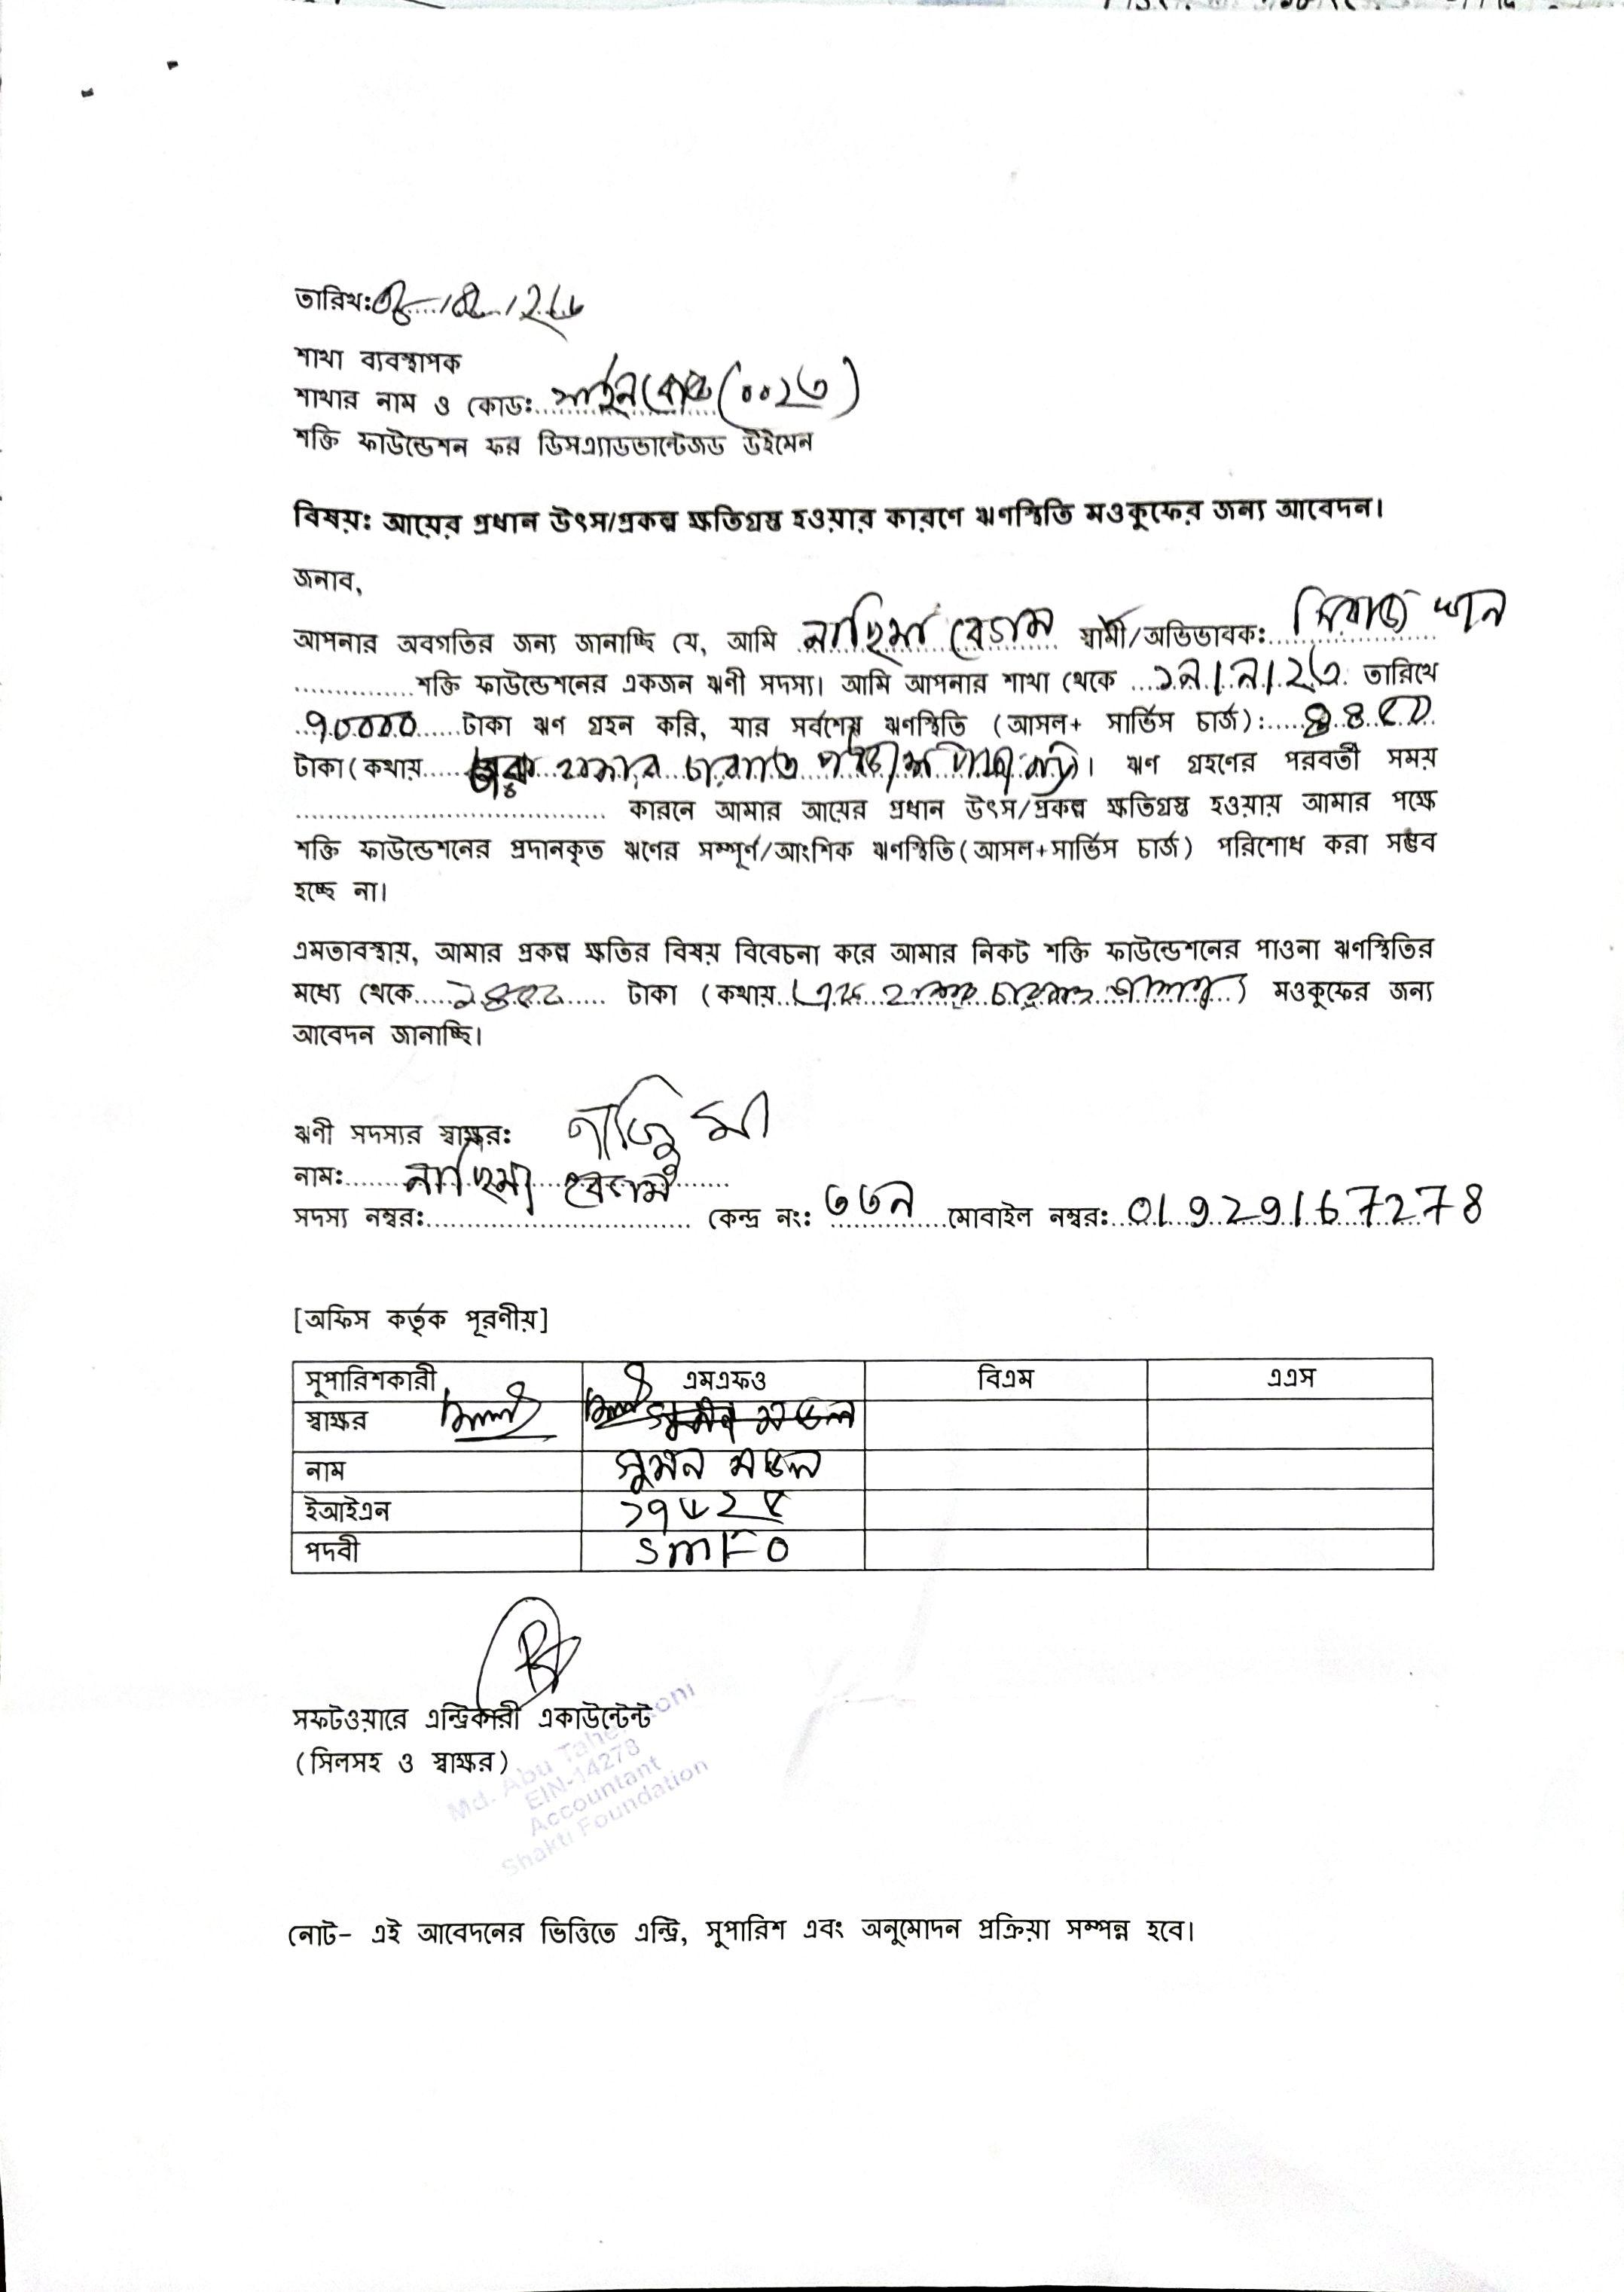 তারিখ:
শাখা ব্যবস্থাপক
শাখার নাম ও কোড: সাইনবোর্ড (০০২৩)
শক্তি ফাউন্ডেশন ফর ডিসএ্যাডভান্টেজড উইমেন
বিষয়: আয়ের প্রধান উৎস/প্রকল্প ক্ষতিগ্রস্ত হওয়ার কারণে ঋণস্থিতি মওকুফের জন্য আবেদন।
জনাব,
আপনার অবগতির জন্য জানাচ্ছি যে, আমি নাছিমা বেগম স্বামী/অভিভাবক: সিরাজ খান
শক্তি ফাউন্ডেশনের একজন ঋণী সদস্য। আমি আপনার শাখা থেকে ১৯/৯/২৩ তারিখে
৭০০০০ টাকা ঋণ গ্রহন করি, যার সর্বশেষ ঋণস্থিতি (আসল+ সার্ভিস চার্জ):
টাকা (কথায় হাজার চারশত )। ঋণ গ্রহণের পরবর্তী সময়
কারনে আমার আয়ের প্রধান উৎস/প্রকল্প ক্ষতিগ্রস্ত হওয়ায় আমার পক্ষে
শক্তি ফাউন্ডেশনের প্রদানকৃত ঋণের সম্পূর্ণ/আংশিক ঋণস্থিতি(আসল+সার্ভিস চার্জ) পরিশোধ করা সম্ভব
হচ্ছে না।
এমতাবস্থায়, আমার প্রকল্প ক্ষতির বিষয় বিবেচনা করে আমার নিকট শক্তি ফাউন্ডেশনের পাওনা ঋণস্থিতির
মধ্যে থেকে টাকা (কথায় এক হাজার চারশত ) মওকুফের জন্য
আবেদন জানাচ্ছি।
ঋণী সদস্যর স্বাক্ষর: নাজুমা
নাম: নাছিমা বেগম
সদস্য নম্বর: কেন্দ্র নং: ৩৩৯ মোবাইল নম্বর: 01929167278
[অফিস কর্তৃক পূরণীয়]
সুপারিশকারী এমএফও বিএম এএস
স্বাক্ষর সুমন মন্ডল
নাম সুমন মন্ডল
ইআইএন ১৭৬২৫
পদবী SMFO
সফটওয়ারে এন্ট্রিকারী একাউন্টেন্ট
(সিলসহ ও স্বাক্ষর)
Md. Abu Taher
EIN-14278
Accountant
Shakti Foundation
নোট- এই আবেদনের ভিত্তিতে এন্ট্রি, সুপারিশ এবং অনুমোদন প্রক্রিয়া সম্পন্ন হবে।